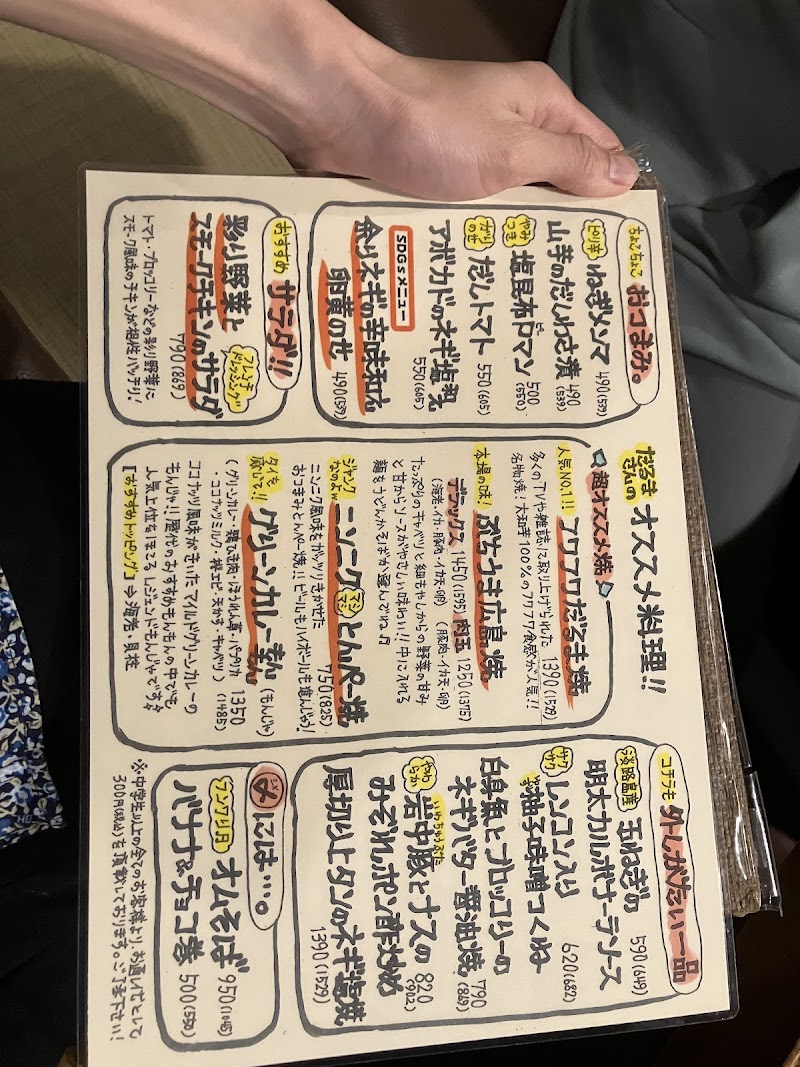 だるまさんの オススメ料理!!
ちょこちょこ おつまみ。
ピリ辛 ねぎメンマ 490(539)
山芋のだしわさ漬 490(539)
やみつき 塩昆布ピーマン 500(550)
ガリのせ だしトマト 550(605)
アボカドのネギ塩兒 550(605)
SDGsメニュー
余りネギの辛味和え
卵黄のせ 490(539)
おすすめ サラダ!!
彩り野菜と
スモークチキンのサラダ
フレンチドレッシング 790(869)
トマト・ブロッコリーなどの彩り野菜に
スモーク風味のチキンが相性バッチリ!
超オススメ焼
人気NO.1!! フワフワだるま焼
多くのTVや雑誌に取り上げられた 1390(1529)
名物焼!大和芋100%のフワフワ食感が人気!!
本場の味! ぶちうま広島焼
デラックス 1450(1595) 肉玉 1250(1375)
(海老・イカ・豚肉・イカ天・卵) (豚肉・イカ天・卵)
たっぷりのキャベツと細もやしからの野菜の甘み
と甘からソースがやさしい味わい!!中に入れる
麺をうどんかそばか選んでね♫
ジャンクなのよ〜 ニンニクマシマシとんペー焼
ニンニク風味をガッツリきかせた 750(825)
おつまみとんペー焼!!ビールもハイボールも進んじゃう!
タイを感じて!! グリーンカレーもん (もんじゃ)
(グリーンカレー・鶏ひき肉・ほうれん草・パプリカ 1350
・ココナッツミルク・桜エビ・天かす・キャベツ) (1485)
ココナッツ風味がきいたマイルドグリーンカレーの
もんじゃ!!歴代のおすすめもんもんの中でも
人気上位をほこるレジェンドもんじゃです
【おすすめトッピング】⇒海老・貝柱
コチラも 外しがたい一品
淡路島産 玉ねぎの 590(649)
明太カルボナーラソース
サクサク レンコン入り 620(682)
柚子味噌つくね
白身魚とブロッコリーの
ネギバター醤油焼 790(869)
やわらか 岩中豚とナスの 820(902)
いわちゅうぶた
みぞれポン酢炒め
厚切りヒタンのネギ塩焼
1390(1529)
〆には…。
シメ
フンワリ月 オムそば 950(1045)
バナナ&チョコ巻 500(550)
※中学生以上の全てのお客様より、お通しだとして
300円(税込)を頂戴しております。ご了承下さい!